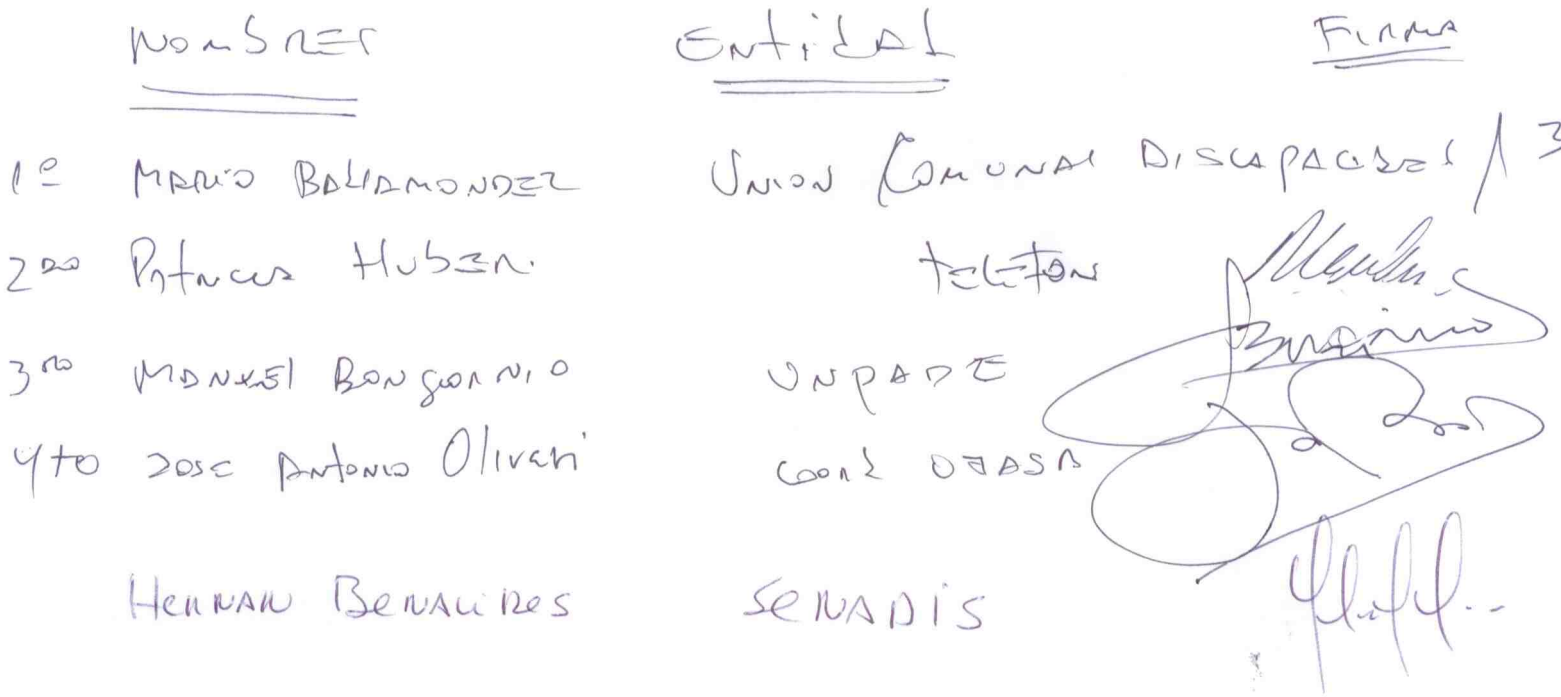 Nombres Entidad Firma
1º Mario Bahamondez Union Comunal Discapacidad
2do Patricia Huber. Teleton
3ro Manuel Bongiorno UNPADE
4to Jose Antonio Olivari Coord OJASA
Hernan Benalires SENADIS